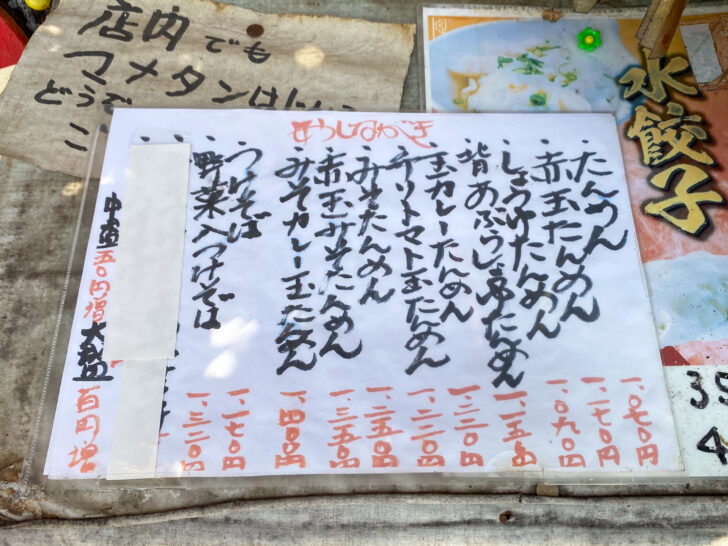 店内でも
マメタンは
どうぞ
水餃子
おしながき
・たんめん 一、〇七〇円
・赤玉たんめん 一、一七〇円
・しょうゆたんめん 一、〇九〇円
・背あぶらしょう油たんめん 一、一五〇円
・玉カレーたんめん 一、二二〇円
・チリトマト玉たんめん 一、二二〇円
・みそたんめん 一、二五〇円
・赤玉みそたんめん 一、三五〇円
・みそカレー玉たんめん 一、四〇〇円
・つけそば 一、一七〇円
・野菜入つけそば 一、三二〇円
中盛五〇円増 大盛百円増